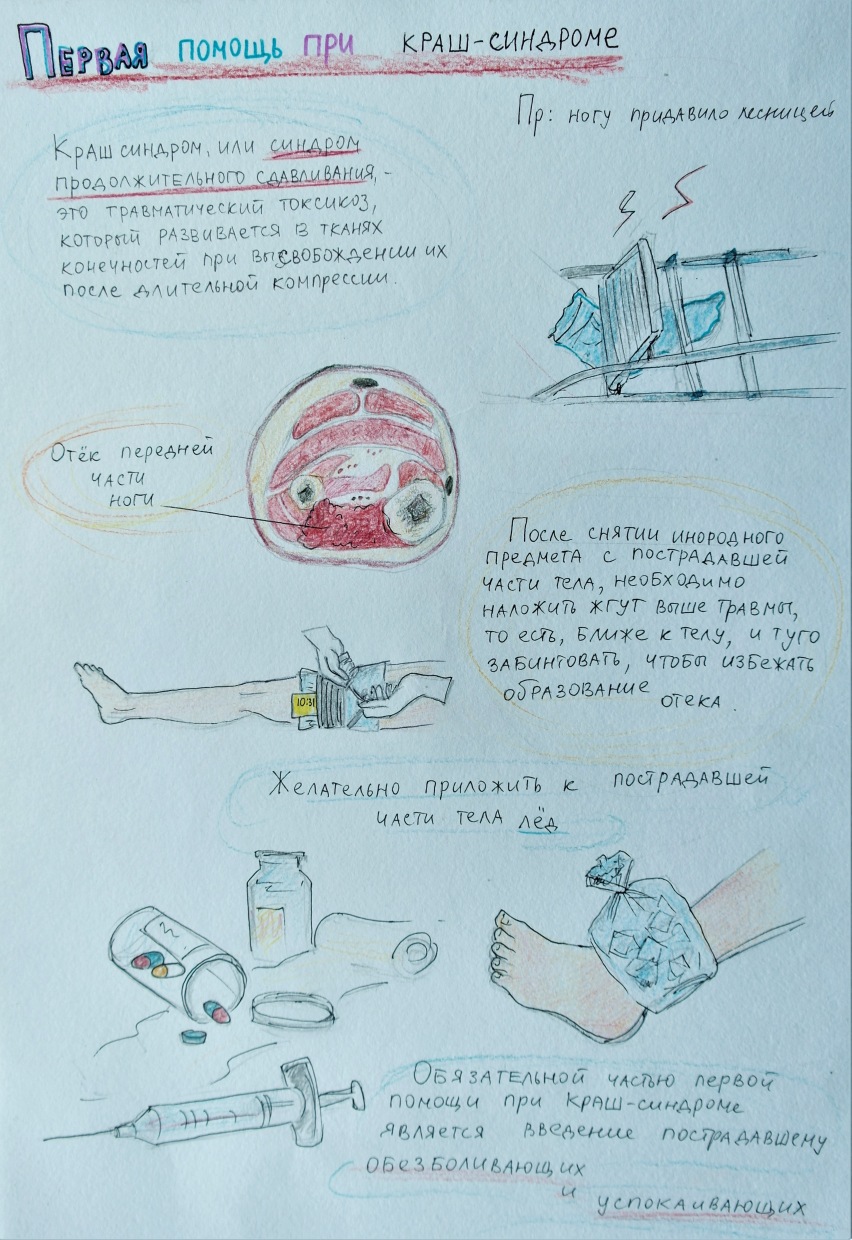 Первая помощь при краш-синдроме
Пр: ногу придавило лесницей
Краш синдром, или синдром
продолжительного сдавливания, -
это травматический токсикоз,
который развивается в тканях
конечностей при высвобождении их
после длительной компрессии.
Отёк передней
части
ноги
После снятии инородного
предмета с пострадавшей
части тела, необходимо
наложить жгут выше травмы,
то есть, ближе к телу, и туго
забинтовать, чтобы избежать
образование отека.
10:31
Желательно приложить к пострадавшей
части тела лёд
Обязательной частью первой
помощи при краш-синдроме
является введение пострадавшему
обезболивающих
и успокаивающих